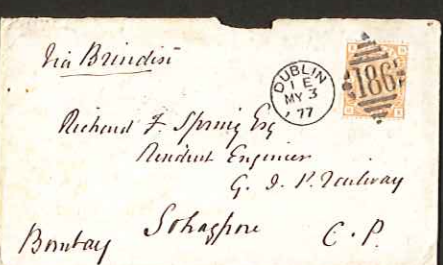 Via Brindisi
DUBLIN
1 E
MY 3
77
186
Richard F. Spring Esq
Resident Engineer
G. I. P. Railway
Sohagpore
Bombay C. P.